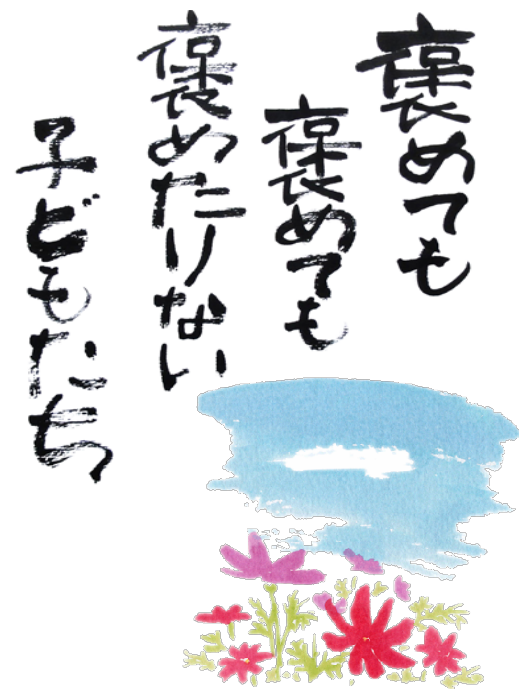 褒めても
褒めても
褒めたりない
子どもたち